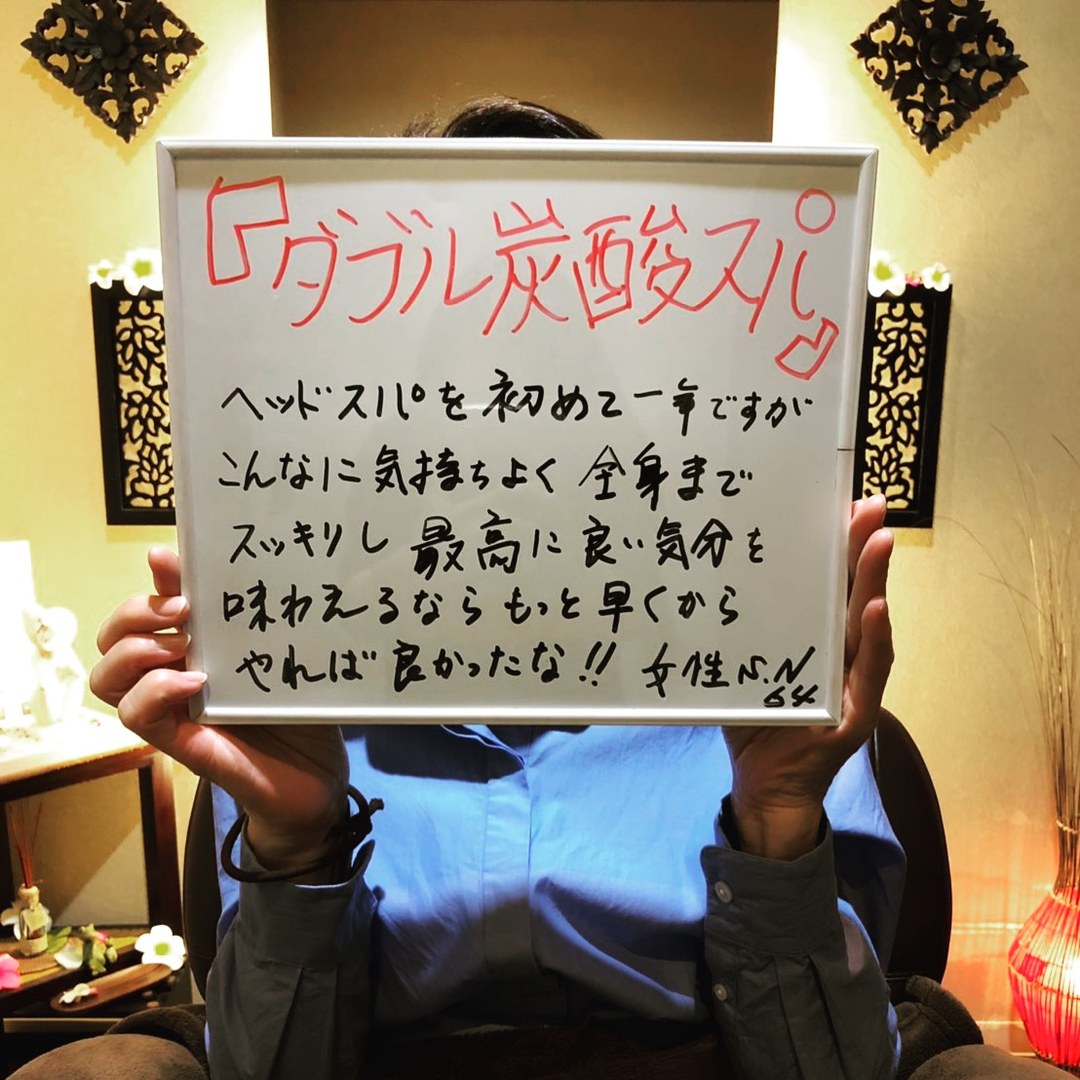 『ダブル炭酸スパ』
ヘッドスパを初めて一年ですが
こんなに気持ちよく全身まで
スッキリし最高に良い気分を
味わえるならもっと早くから
やれば良かったな!! 女性 N.N